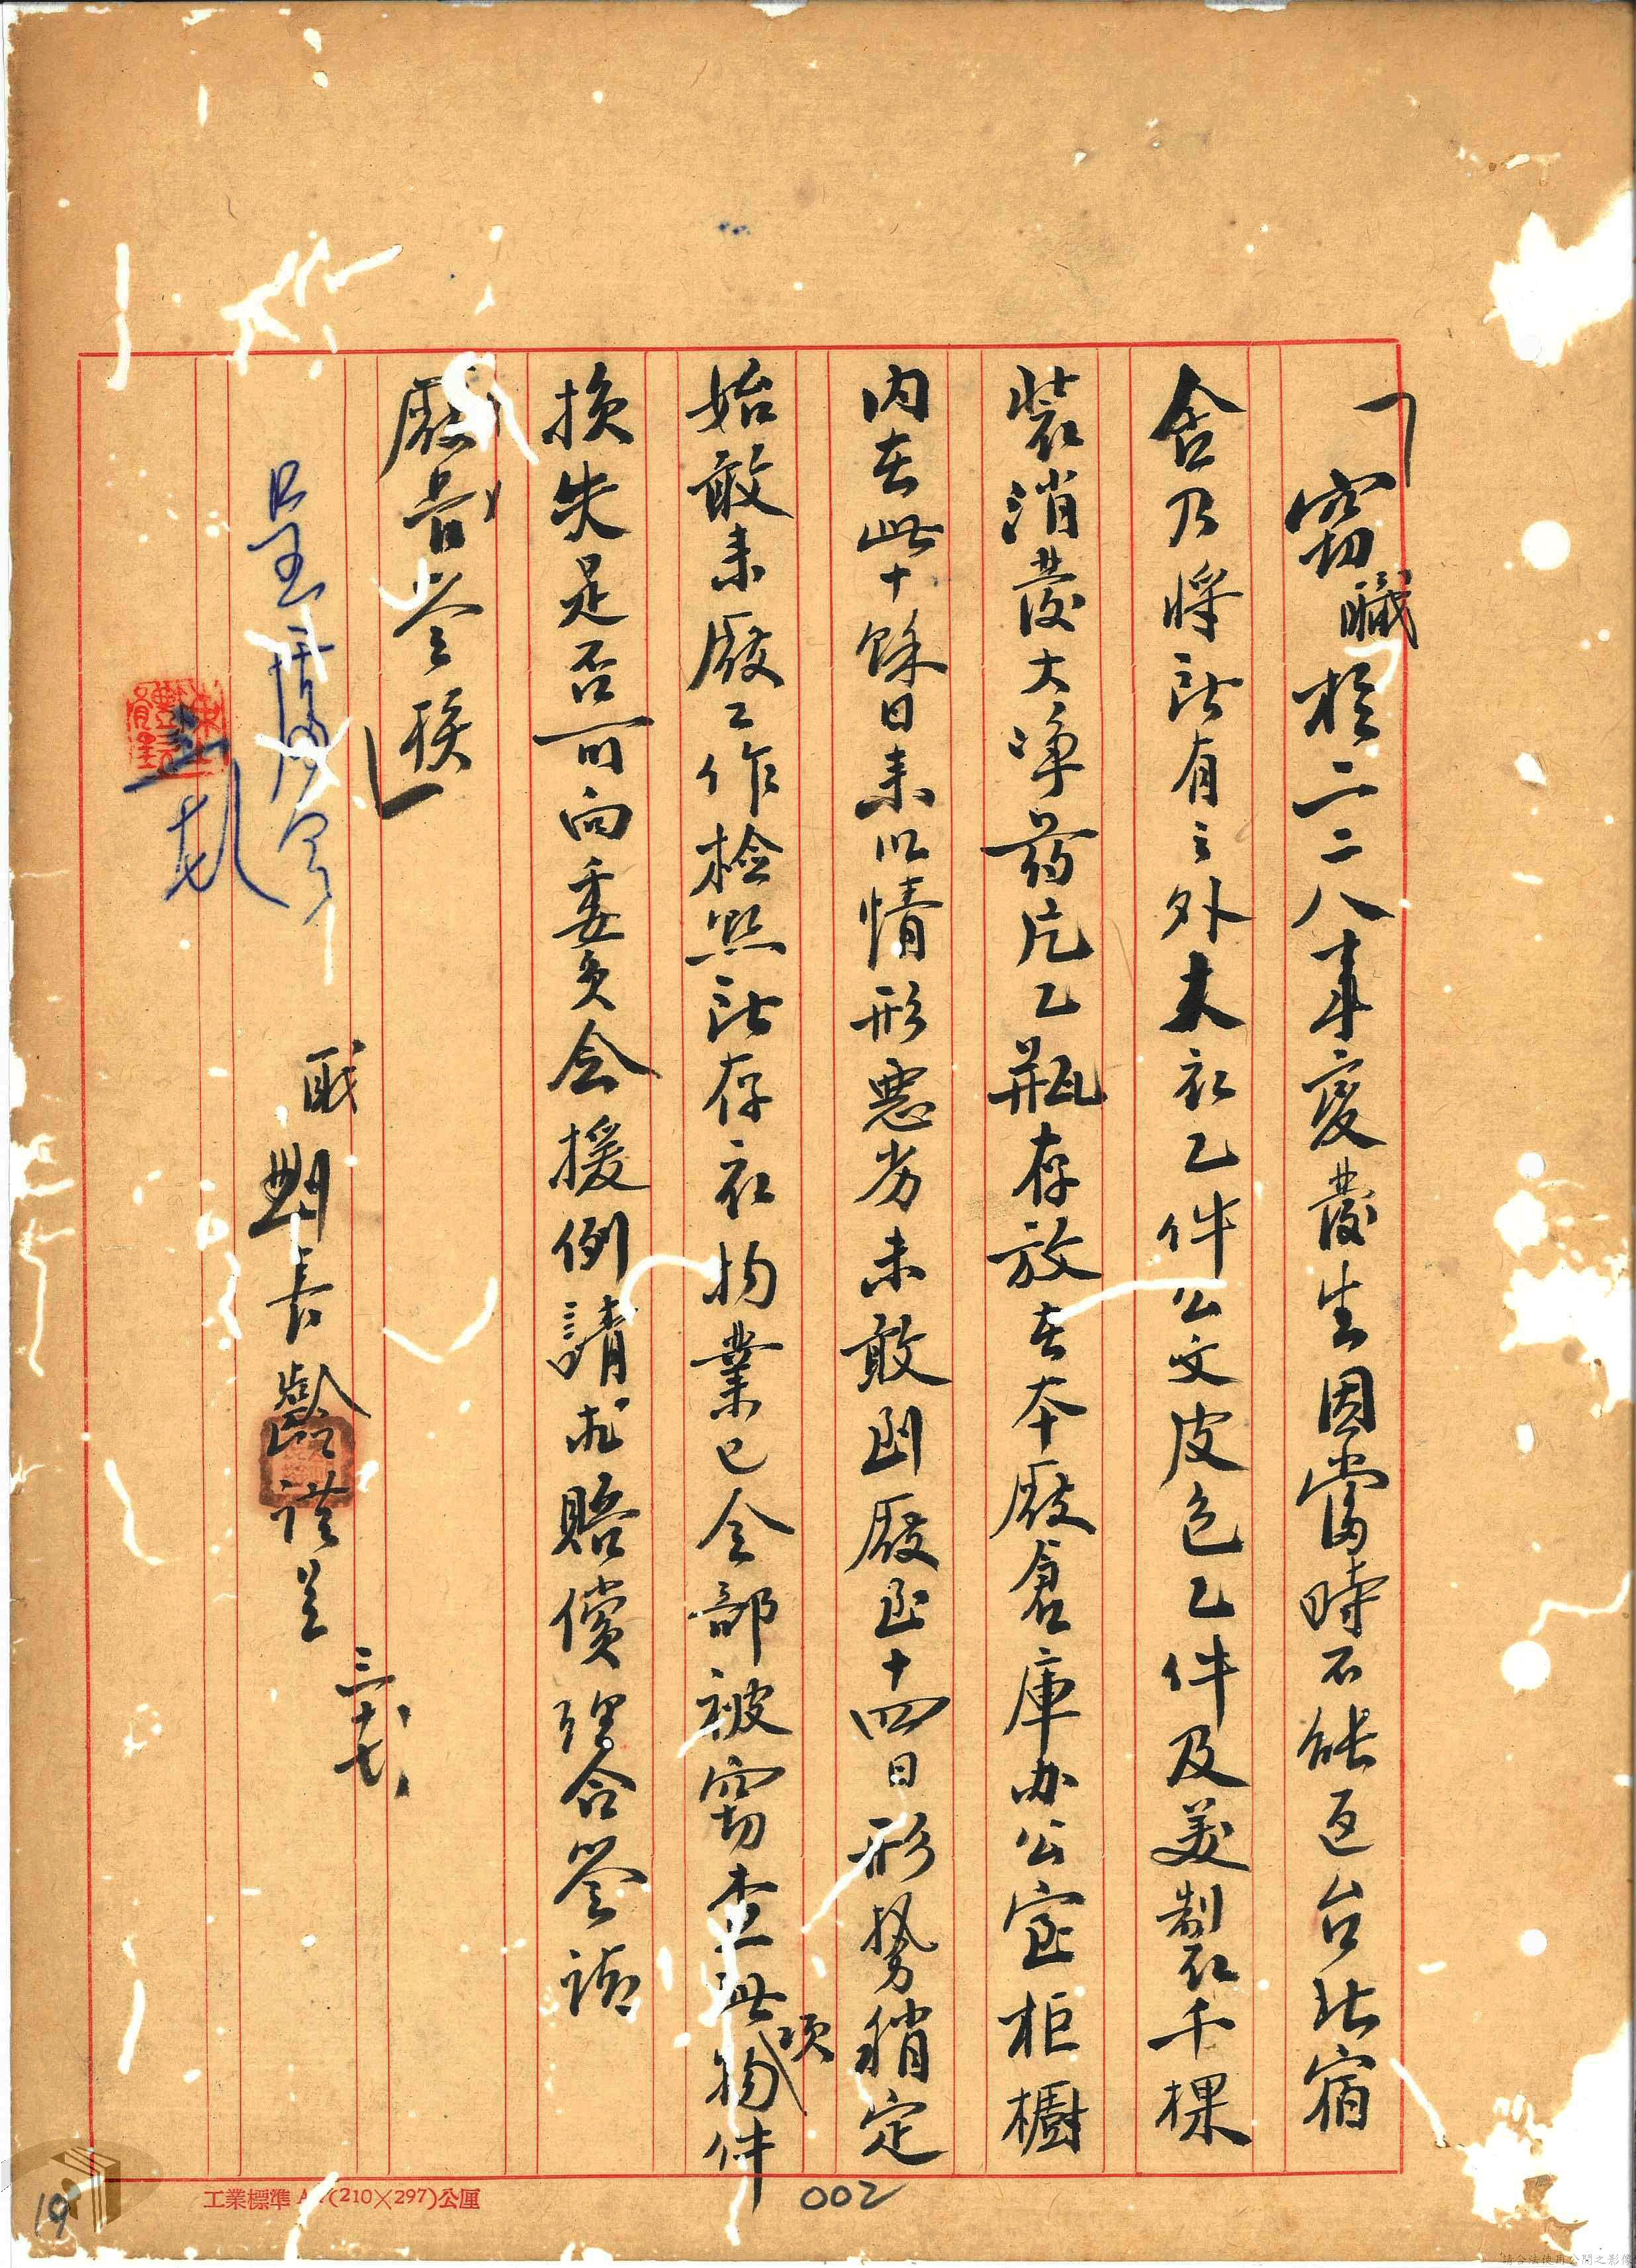 「竊職於二二八事變發生因當時不能返台北宿
舍乃將所有之外末衣乙件公文皮包乙件及美製千棵
裝消發大淨葯片乙瓶存放在本廠倉庫办公室柜櫥
內在此十餘日來以情形惡劣未敢到廠至十四日形勢稍定
始敢来廠工作檢點所存衣物業已全部被竊查此項物件
損失是否可向委員会援例請求賠償理合簽請
廠長簽核」
職 長齡謹呈
三十七
呈
工業標準 A4(210×297)公厘
002
19